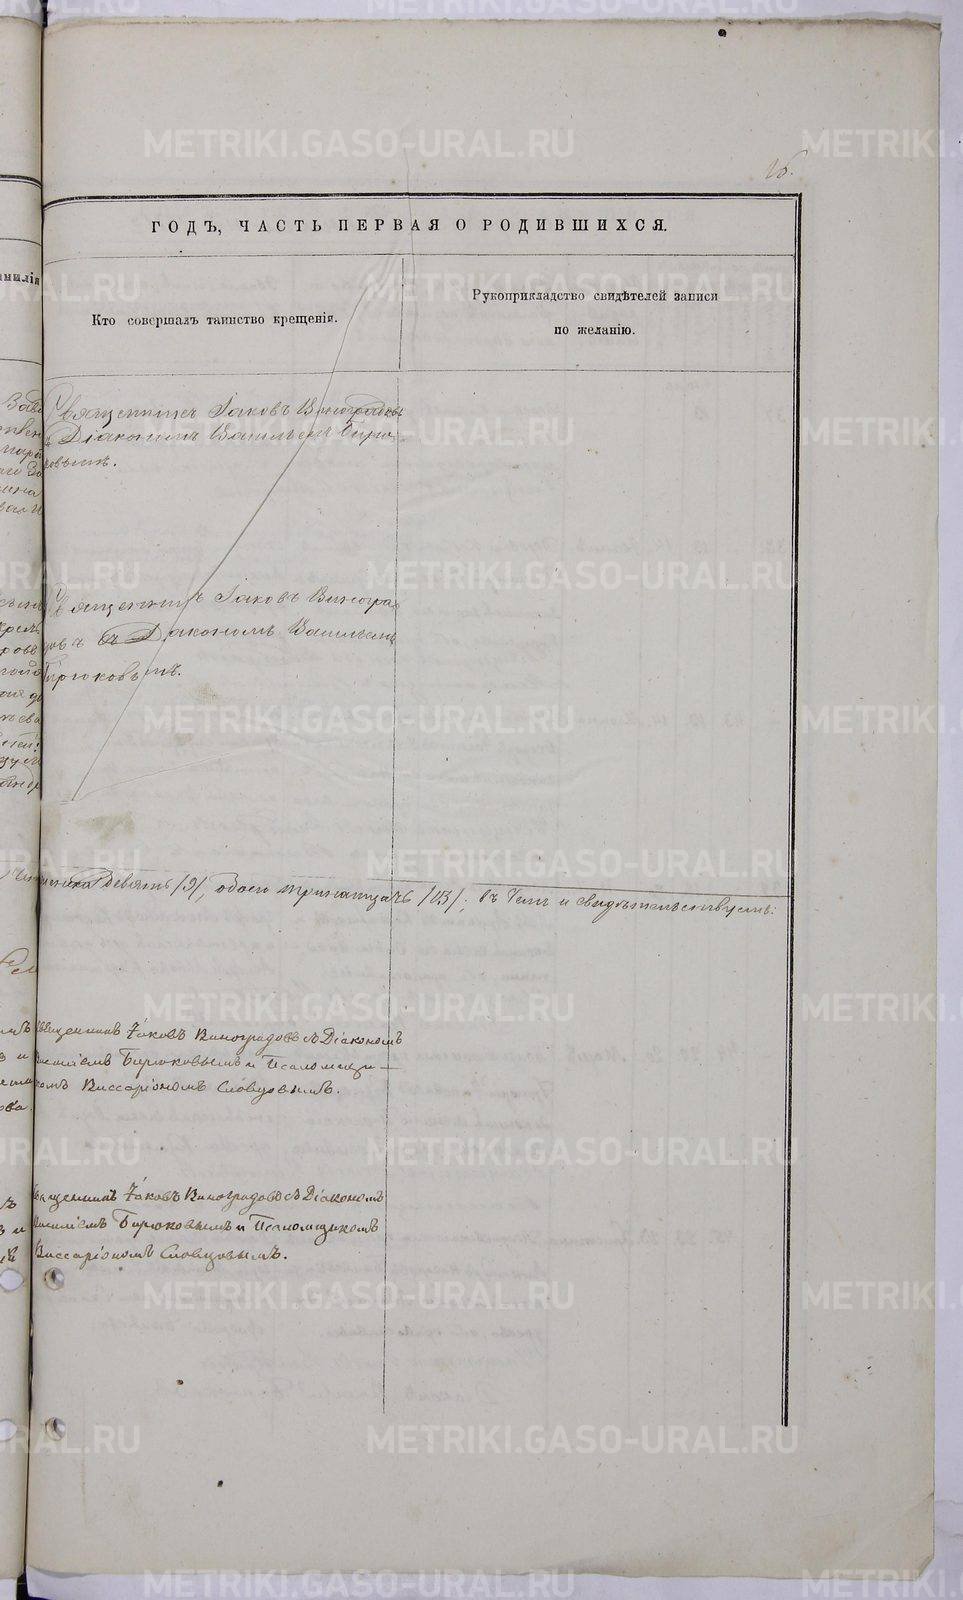 METRIKI.GASO-URAL.RU
ГОДЪ, ЧАСТЬ ПЕРВАЯ О РОДИВШИХСЯ.
Кто совершалъ таинство крещенія.
Рукоприкладство свидѣтелей записи
по желанію.
Священникъ Іаковъ Виноградовъ
Діакономъ Василіемъ Бирю-
ковымъ.
Священникъ Іаковъ Виногра
довъ съ Діакономъ Василіемъ
Бирюковымъ.
девять /9/, обоего тринатцать /13/; въ чемъ и свидѣтельствуемъ:
Священникъ Іаковъ Виноградовъ съ Діакономъ
Василіемъ Бирюковымъ и Псаломщи-
комъ Виссаріономъ Словцовымъ.
Священникъ Іаковъ Виноградовъ съ Діакономъ
Василіемъ Бирюковымъ и Псаломщикомъ
Виссаріономъ Словцовымъ.